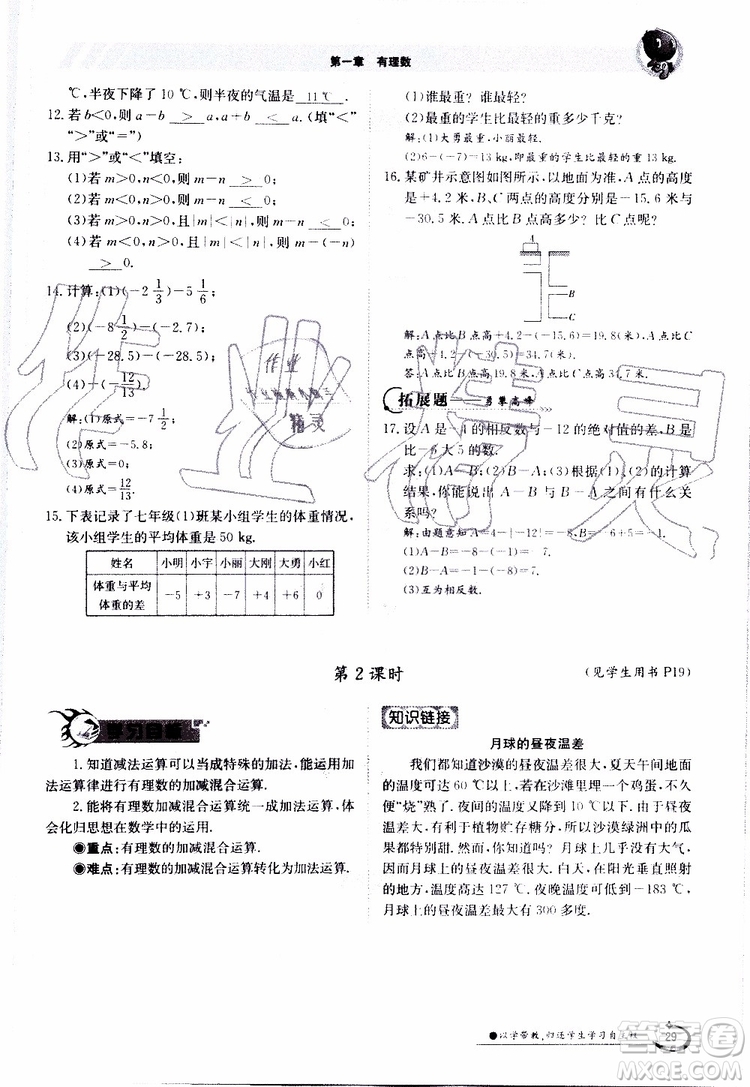 第一章 有理数
℃,半夜下降了 10 ℃,则半夜的气温是 11 ℃ .
12. 若 b<0,则 a-b > a,a+b < a.(填“<”
“>”或“=”)
13. 用“>”或“<”填空:
(1)若 m>0,n<0,则 m-n > 0;
(2)若 m<0,n>0,则 m-n < 0;
(3)若 m>0,n<0,且|m|<|n|,则 m-n
> 0;
(4)若 m<0,n>0,且|m|<|n|,则 n-m
> 0.
14. 计算:(1)(-2 1/3)-5 1/6;
(2)(-8 1/2)-(-2.7);
(3)(-28.5)-(-28.5);
(4)-(-12/13).
解:(1)原式=-7 1/2;
(2)原式=-5.8;
(3)原式=0;
(4)原式=12/13.
15. 下表记录了七年级(1)班某小组学生的体重情况,
该小组学生的平均体重是 50 kg.
姓名 小明 小宇 小丽 大刚 大勇 小红
体重与平均
体重的差 -5 +3 -7 +4 +6 0
(1)谁最重?谁最轻?
(2)最重的学生比最轻的重多少千克?
解:(1)大勇最重,小丽最轻.
(2)6-(-7)=13 kg,即最重的学生比最轻的重13 kg.
16. 某矿井示意图如图所示,以地面为准,A 点的高度
是+4.2 米,B、C 两点的高度分别是-15.6 米与
-30.5 米.A 点比 B 点高多少?比 C 点呢?
A
B
C
解:A 点比 B 点高+4.2-(-15.6)=19.8(米),
A 点比 C 点高+4.2-(-30.5)=34.7(米).
答:A 点比 B 点高 19.8 米,比 C 点高 34.7 米.
拓展题 勇攀高峰
17. 设 A 是-4 的相反数与-12 的绝对值的差,B 是
比-6 大 5 的数.
求:(1)A-B,(2)B-A,(3)根据(1)(2)的计算
结果,你能说出 A-B 与 B-A 之间有什么关
系吗?
解:由题意知 A=4-|-12|=-8,B=-6+5=-1.
(1)A-B=-7.
(2)B-A=7.
(3)互为相反数.
第 2 课时
(见学生用书 P19)
学习目标
1. 知道减法运算可以当成特殊的加法,能用加
法运算律进行有理数的加减混合运算.
2. 能将有理数加减混合运算统一成加法运算,体
会化归思想在数学中的运用.
●重点:有理数的加减混合运算.
●难点:有理数的加减混合运算转化为加法运算.
知识链接
月球的昼夜温差
我们都知道沙漠的昼夜温差很大,夏天午间最高
的温度可达 50 ℃,若在沙滩里埋一个鸡蛋,不久
便“烧”熟了.夜间的温度又降到 10 ℃以下,由于昼夜
温差大,有利于植物贮存糖分,所以沙漠绿洲中的瓜
果都特别甜.你知道吗?月球上几乎没有大气,因
而月球上的昼夜温差很大.白天,在阳光垂直照射
的地方,温度高达 127 ℃,夜晚温度可低到-183 ℃,
月球上的昼夜温差最大有 300 多度.
29
答案圈
MXQE.COM
作业
精灵